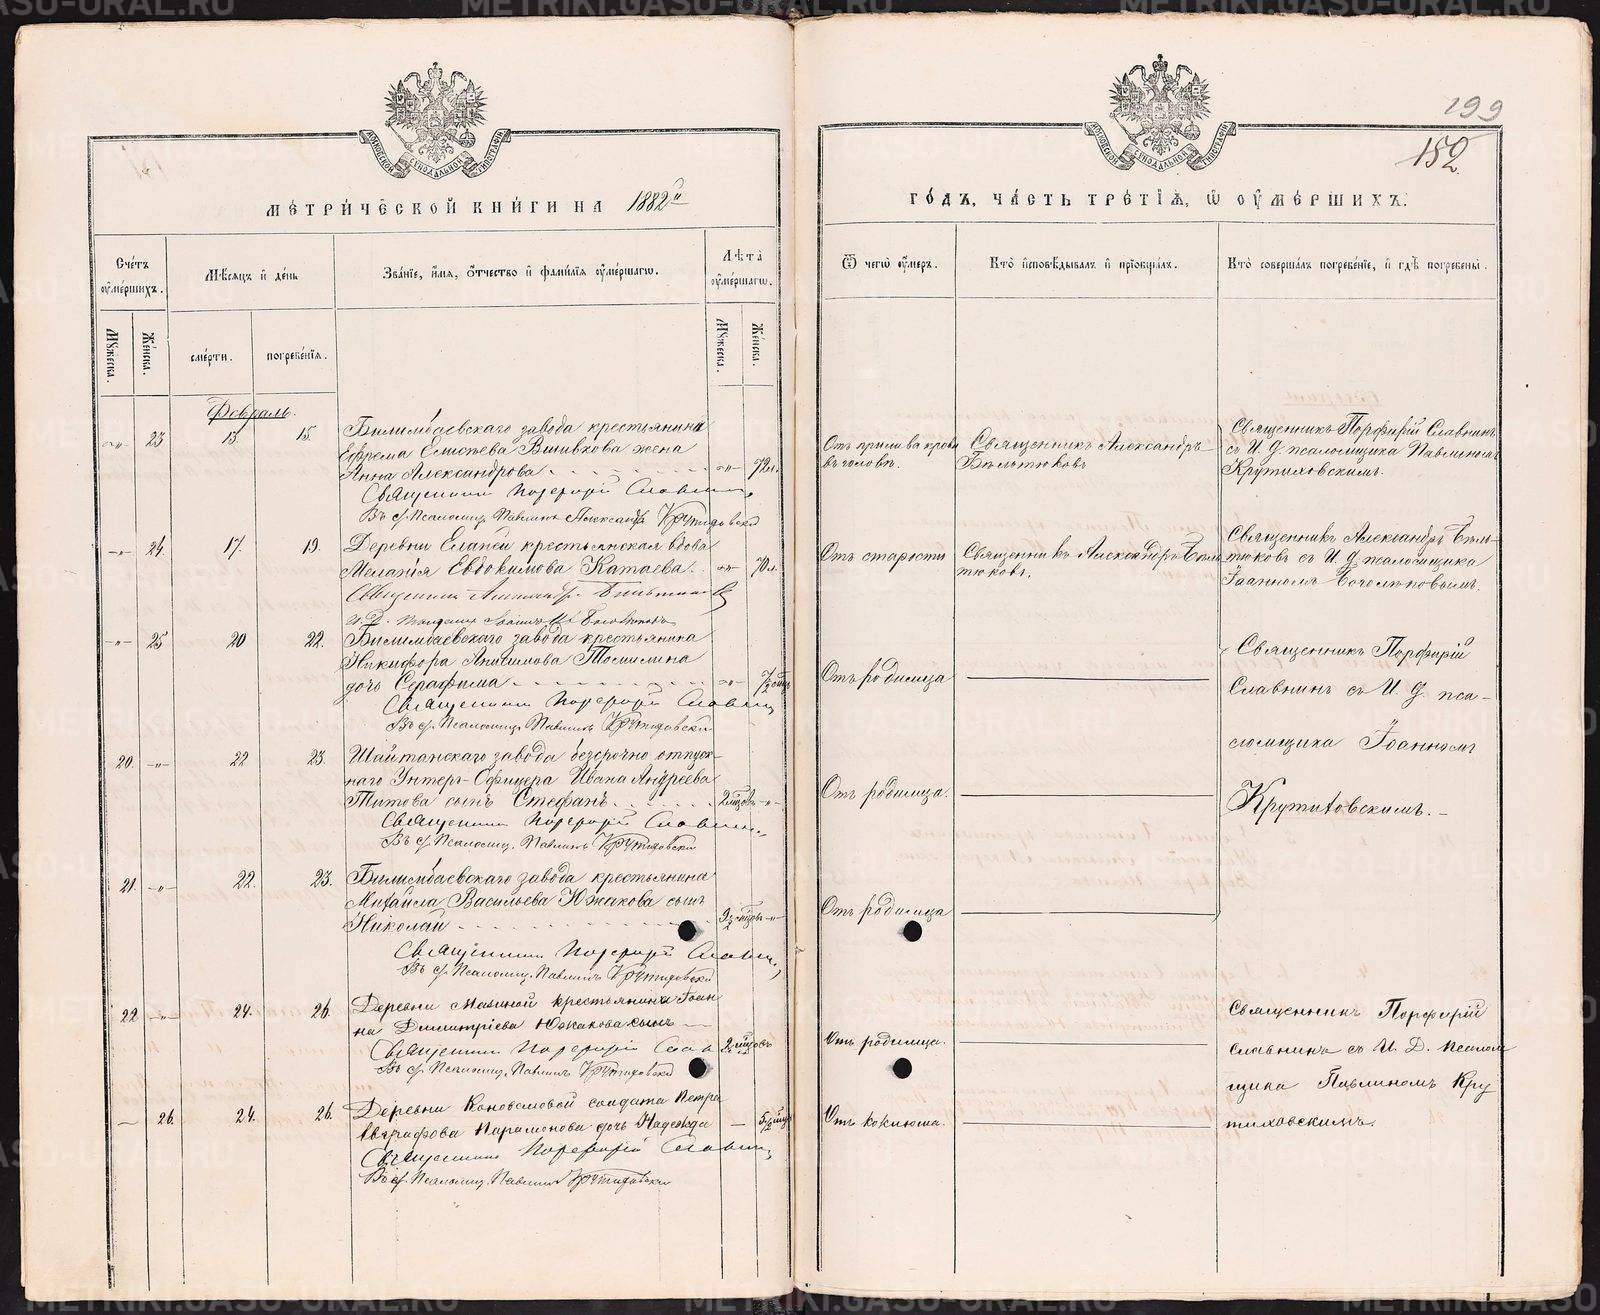 МОСКОВСКОЙ СѴНОДАЛЬНОЙ ТИПОГРАФІИ
МЕТРИЧЕСКОЙ КНИГИ НА 1882й
Счетъ оумершихъ.
Мѣсяцъ и день
Званіе, имя, отчество и фамилія оумершагω.
Лѣта оумершагω.
Мꙋжеска.
Женска.
смерти.
погребенія.
Мꙋжеска.
Женска.
Февраль.
-"- 23 13. 15. Билимбаевскаго завода крестьянина
Ефрема Елисѣева Вшивкова жена
Анна Александрова -"- 72 л.
Священникъ Порфирій Славнинъ
Въ д. Псаломщ. Павлинъ Крутиховскій
-"- 24. 17. 19. Деревни Елапей крестьянская вдова
Меланія Евдокимова Катаева. -"- 70 л.
Священникъ Александръ Бѣльтюковъ
И. д. псаломщика
-"- 25 20 22. Билимбаевскаго завода крестьянина
Никифора Анисимова Томилина
дочь Серафима -"-
Священникъ Порфирій Славнинъ
Въ д. Псаломщ. Павлинъ Крутиховскій
20. -"- 22 23. Шайтанскаго завода безсрочно отпуск-
наго Унтеръ-Офицера Ивана Андреева
Титова сынъ Стефанъ. 2 мѣсц. -"-
Священникъ Порфирій Славнинъ
Въ д. Псаломщ. Павлинъ Крутиховскій
21. -"- 22. 23. Билимбаевскаго завода крестьянина
Михаила Васильева Южакова сынъ
Николай -"-
Священникъ Порфирій Славнинъ
Въ д. Псаломщ. Павлинъ Крутиховскій
22 -"- 24. 26. Деревни Мазиной крестьянина Іоан
на Димитріева Южакова сынъ
Священникъ Порфирій Славнинъ
Въ д. Псаломщ. Павлинъ Крутиховскій
— 26. 24. 26. Деревни Коноваловой солдата Петра
Евграфова Парамонова дочь Надежда —
Священникъ Порфирій Славнинъ
Въ д. Псаломщ. Павлинъ Крутиховскій
199
152
МОСКОВСКОЙ СѴНОДАЛЬНОЙ ТИПОГРАФІИ
ГОДЪ, ЧАСТЬ ТРЕТІЯ, Ѿ ОУМЕРШИХЪ.
Ѿ чегω оумеръ.
Кто исповѣдывалъ и пріобщалъ.
Кто совершалъ погребеніе, и гдѣ погребены.
Отъ прилива крови
въ головѣ.
Священникъ Александръ
Бѣльтюковъ
Священникъ Порфирій Славнинъ
съ И. д. псаломщика Павлиномъ
Крутиховскимъ.
Отъ старости
Священникъ Александръ Бѣль
тюковъ.
Священникъ Александръ Бѣль-
тюковъ съ И. д. псаломщика
Іоанномъ Боголѣповымъ.
Отъ родимца
Священникъ Порфирій
Славнинъ съ И. д. пса-
ломщика Іоанномъ
Крутиховскимъ.-
Отъ родимца.
Отъ родимца
Отъ родимца.
Священникъ Порфирій
Славнинъ съ И. Д. псалом
щика Павлиномъ Кру
тиховскимъ.
Отъ коклюша.
METRIKI.GASO-URAL.RU